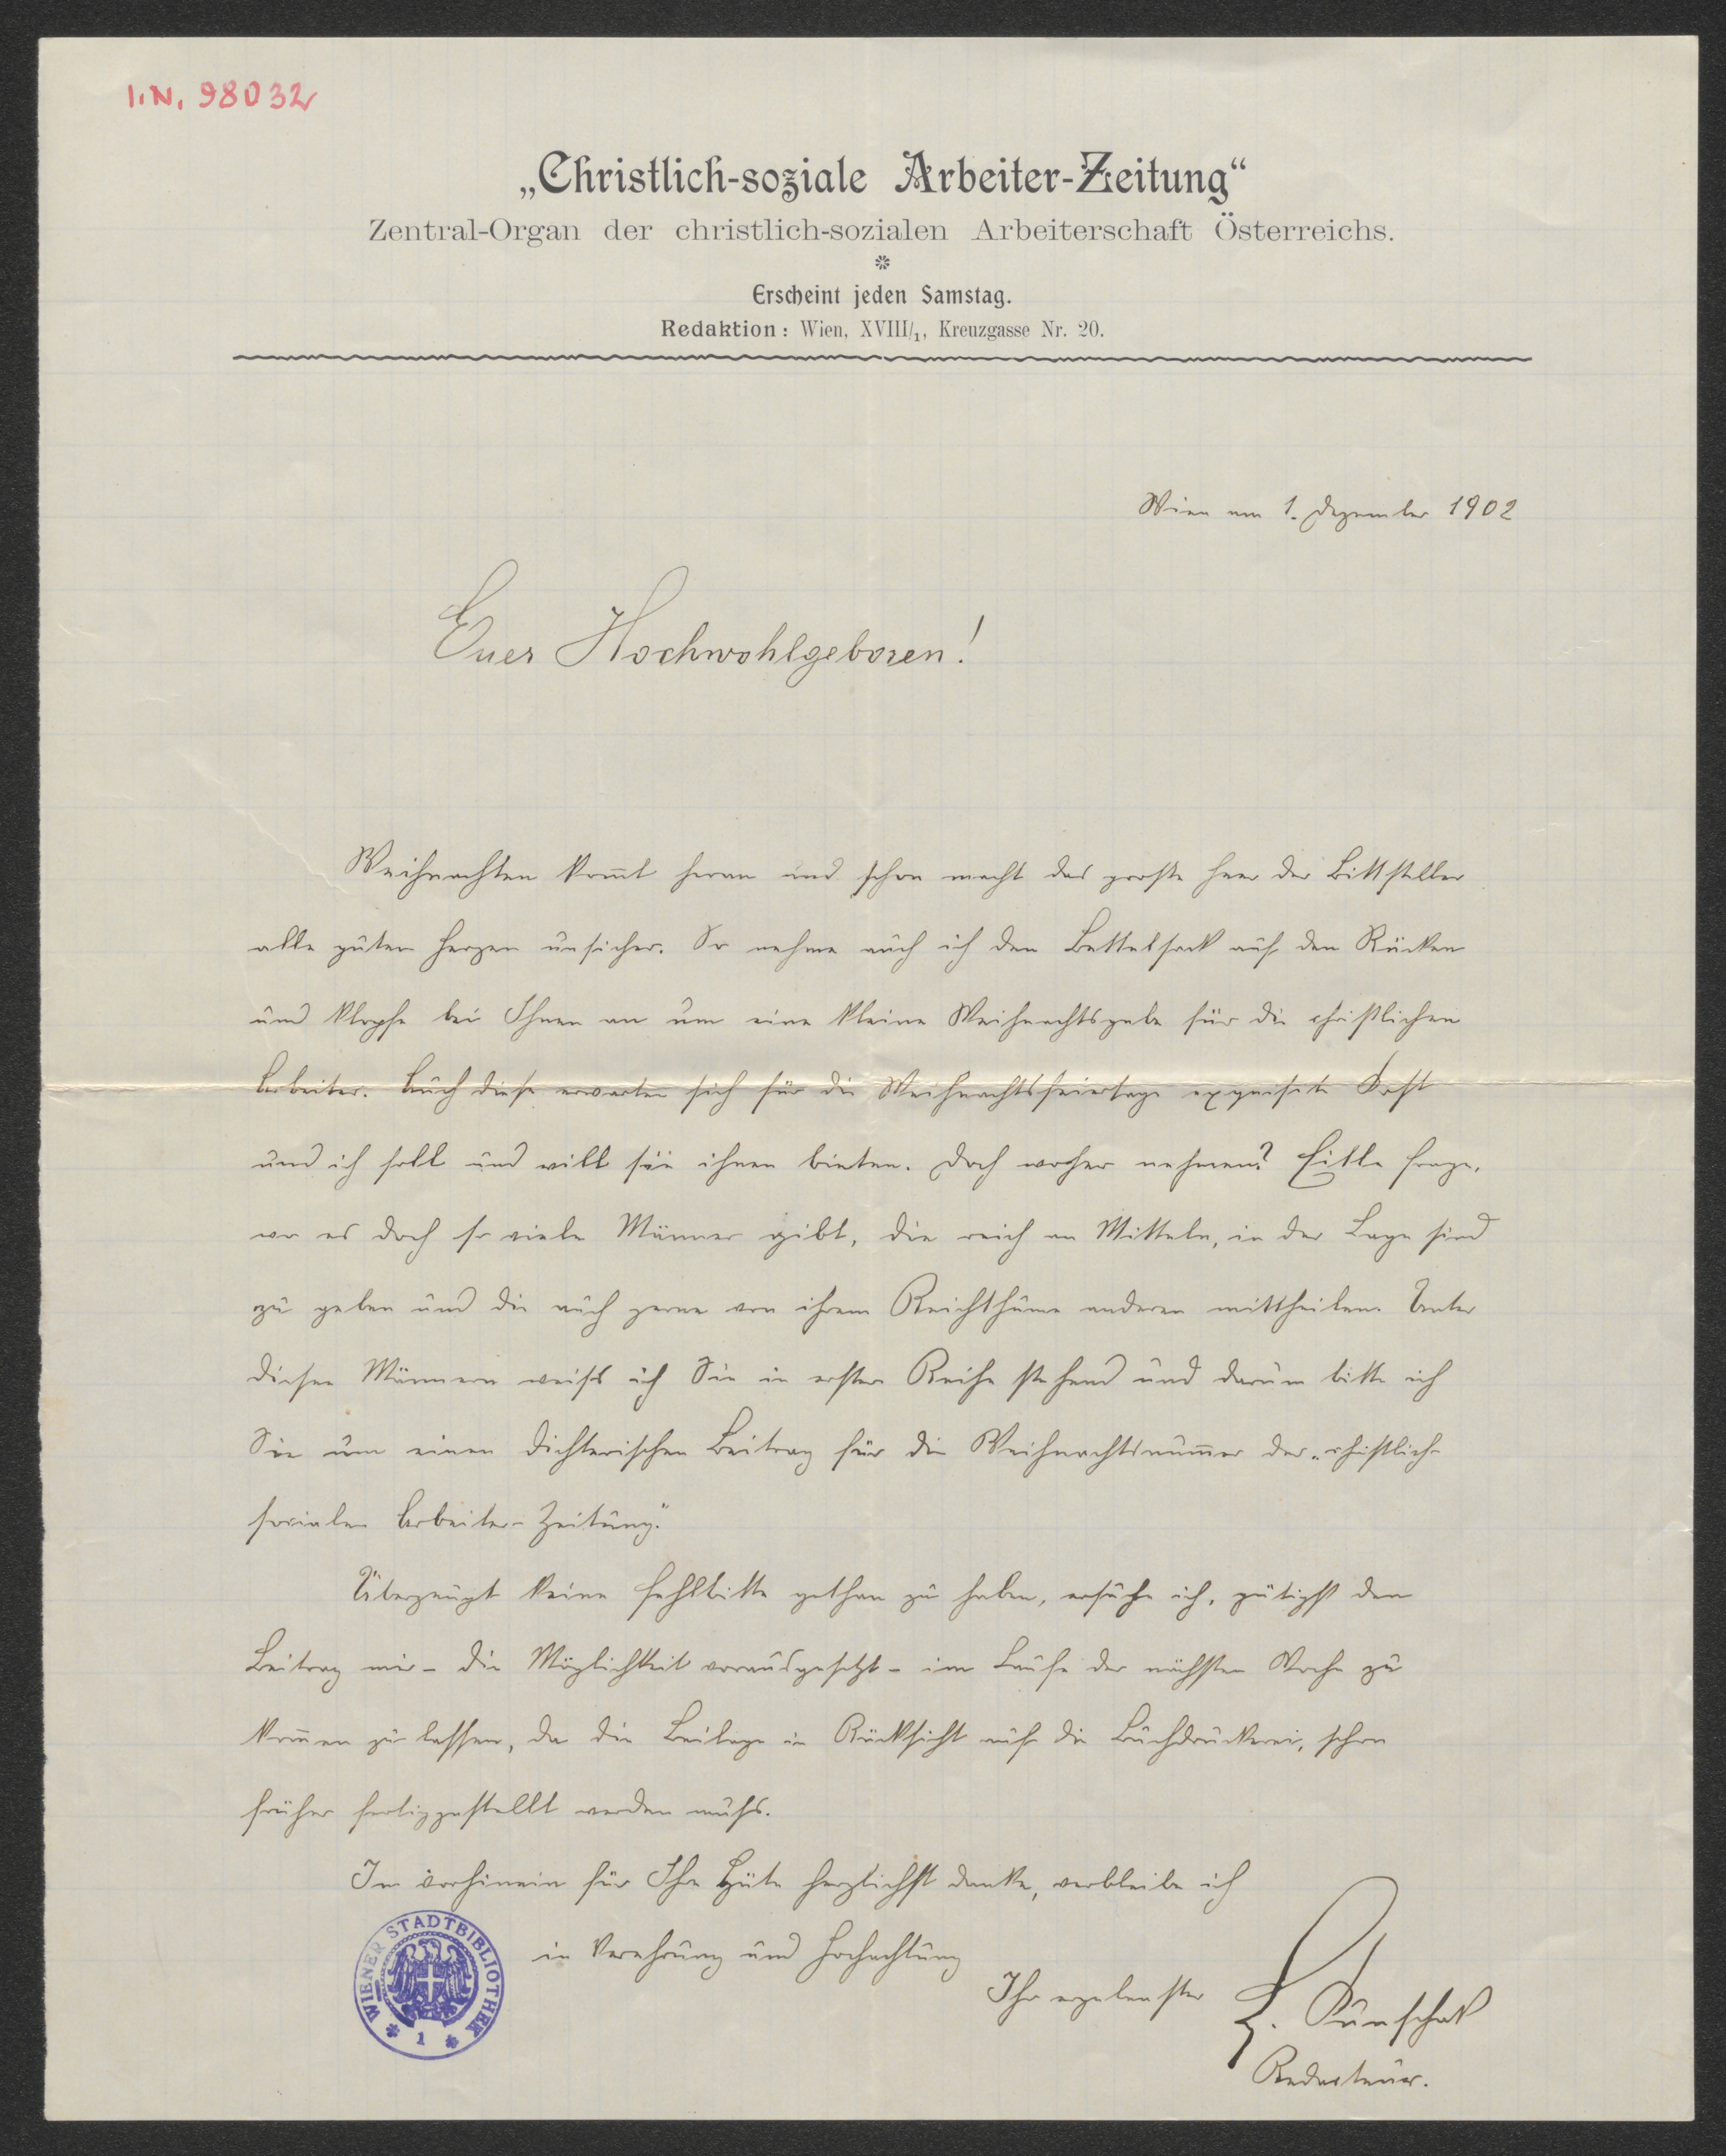 I.N. 98032
„Christlich-soziale Arbeiter-Zeitung“
Zentral-Organ der christlich-sozialen Arbeiterschaft Österreichs.
Erscheint jeden Samstag.
Redaktion: Wien, XVIII/1, Kreuzgasse Nr. 20.
Wien am 1. Dezember 1902
Euer Hochwohlgeboren!
Weihnachten kom̄t heran und schon macht das große Heer der Bittsteller
alle guten Herzen unsicher. So nehme auch ich den Bettelsack auf den Rücken
und klopfe bei Ihnen an um eine kleine Weihnachtsgabe für die christlichen
Arbeiter. Auch diese erwarten sich für die Weihnachtsfeiertage exquisite Kost
und ich soll und will sie ihnen bieten. Doch woher nehmen? Eitle Frage,
wo es doch so viele Männer gibt, die reich an Mitteln, in der Lage sind
zu geben und die auch gerne von ihrem Reichthume anderen mittheilen. Unter
diesen Männern weiß ich Sie in erster Reihe stehend und darum bitte ich
Sie um einen dichterischen Beitrag für die Weihnachtsnum̄er der „christlich-
socialen Arbeiter-Zeitung.“
Überzeugt keine Fehlbitte gethan zu haben, ersuche ich, gütigst den
Beitrag mir – die Möglichkeit vorausgesetzt – im Laufe der nächsten Woche zu
kom̄en zu lassen, da die Beilage in Rücksicht auf die Buchdruckerei, schon
früher fertiggestellt werden muß.
Im vorhinein für Ihre Güte herzlichst danke, verbleibe ich
in Verehrung und Hochachtung
Ihr ergebenster
L. Kunschak
Redacteur.
WIENER STADTBIBLIOTHEK
* 1 *